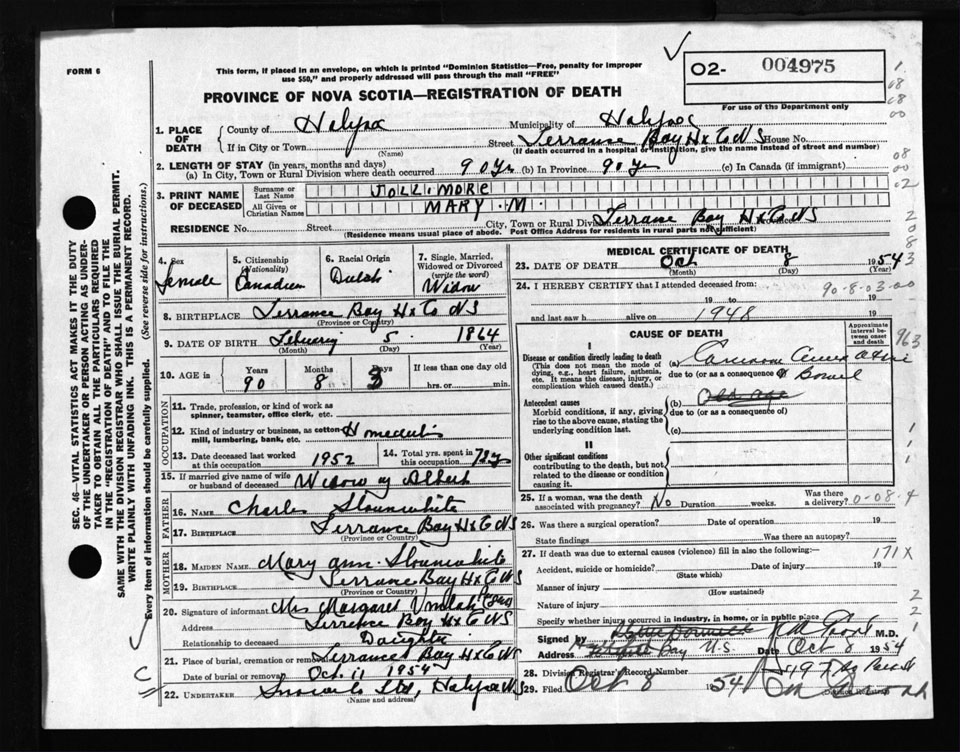 FORM 6
This form, if placed in an envelope, on which is printed "Dominion Statistics—Free, penalty for improper
use $50," and properly addressed will pass through the mail "FREE"
02- 004975
For use of the Department only
PROVINCE OF NOVA SCOTIA—REGISTRATION OF DEATH
1. PLACE OF DEATH
County of Halifax Municipality of Halifax
If in City or Town (Name) Street Terrance Bay Hx Co NS House No.
(If death occurred in a hospital or institution, give the name instead of street and number)
2. LENGTH OF STAY (in years, months and days)
(a) In City, Town or Rural Division where death occurred 90 yrs (b) In Province 90 yr (c) In Canada (if immigrant)
3. PRINT NAME OF DECEASED
Surname or Last Name JOLLIMORE
All Given or Christian Names MARY M.
RESIDENCE No. Street City, Town or Rural Division Terrance Bay Hx Co NS Province
(Residence means usual place of abode. Post Office Address for residents in rural parts not sufficient)
SEC. 46—VITAL STATISTICS ACT MAKES IT THE DUTY
OF THE UNDERTAKER OR PERSON ACTING AS UNDER-
TAKER TO OBTAIN ALL THE PARTICULARS REQUIRED
IN THE "REGISTRATION OF DEATH" AND TO FILE THE
SAME WITH THE DIVISION REGISTRAR WHO SHALL ISSUE THE BURIAL PERMIT.
WRITE PLAINLY WITH UNFADING INK. THIS IS A PERMANENT RECORD.
Every item of information should be carefully supplied. (See reverse side for instructions.)
4. Sex Female
5. Citizenship (Nationality) Canadien
6. Racial Origin Dutch
7. Single, Married, Widowed or Divorced (write the word) Widow
8. BIRTHPLACE Terrance Bay Hx Co NS
(Province or Country)
9. DATE OF BIRTH February 5 1864
(Month) (Day) (Year)
10. AGE is Years 90 Months 8 Days 3 If less than one day old hrs. or min.
OCCUPATION
11. Trade, profession, or kind of work as
spinner, teamster, office clerk, etc.
12. Kind of industry or business, as cotton
mill, lumbering, bank, etc.
13. Date deceased last worked at this occupation 1952
14. Total yrs. spent in this occupation
15. If married give name of wife or husband of deceased Widow of Albert
FATHER
16. NAME Charles Slounwhite
17. BIRTHPLACE Terrance Bay Hx Co NS
(Province or Country)
MOTHER
18. MAIDEN NAME Mary Ann Slounwhite
19. BIRTHPLACE Terrance Bay Hx Co NS
(Province or Country)
20. Signature of informant Mrs Margaret
Address Terrence Bay Hx Co NS
Relationship to deceased Daughter
21. Place of burial, cremation or removal Terrance Bay Hx Co NS
Date of burial or removal Oct. 11 1954
22. UNDERTAKER Snows Ltd, Halifax NS
(Name and address)
MEDICAL CERTIFICATE OF DEATH
23. DATE OF DEATH Oct 8 1954
(Month) (Day) (Year)
24. I HEREBY CERTIFY that I attended deceased from:
19 to 19
and last saw h alive on 1948 19
90-8-03-00
CAUSE OF DEATH
Approximate interval between onset and death
I
Disease or condition directly leading to death
(This does not mean the mode of
dying, e.g., heart failure, asthenia,
etc. It means the disease, injury, or
complication which caused death.)
(a)
due to (or as a consequence of) Bowel
963
Antecedent causes
Morbid conditions, if any, giving
rise to the above cause, stating the
underlying condition last.
(b) Old age
due to (or as a consequence of)
(c)
II
Other significant conditions
contributing to the death, but not
related to the disease or condition
causing it.
25. If a woman, was the death associated with pregnancy? No Duration weeks. Was there a delivery? 0-08-4
26. Was there a surgical operation? Date of operation 19
State findings Was there an autopsy?
27. If death was due to external causes (violence) fill in also the following:— 171X
Accident, suicide or homicide? Date of injury 19
(State which)
Manner of injury
(How sustained)
Nature of injury
Specify whether injury occurred in industry, in home, or in public place
Signed by M.D.
Address Bay N.S. Date Oct 8 1954
28. Division Registrar's Record Number
29. Filed Oct 8 1954
Division Registrar